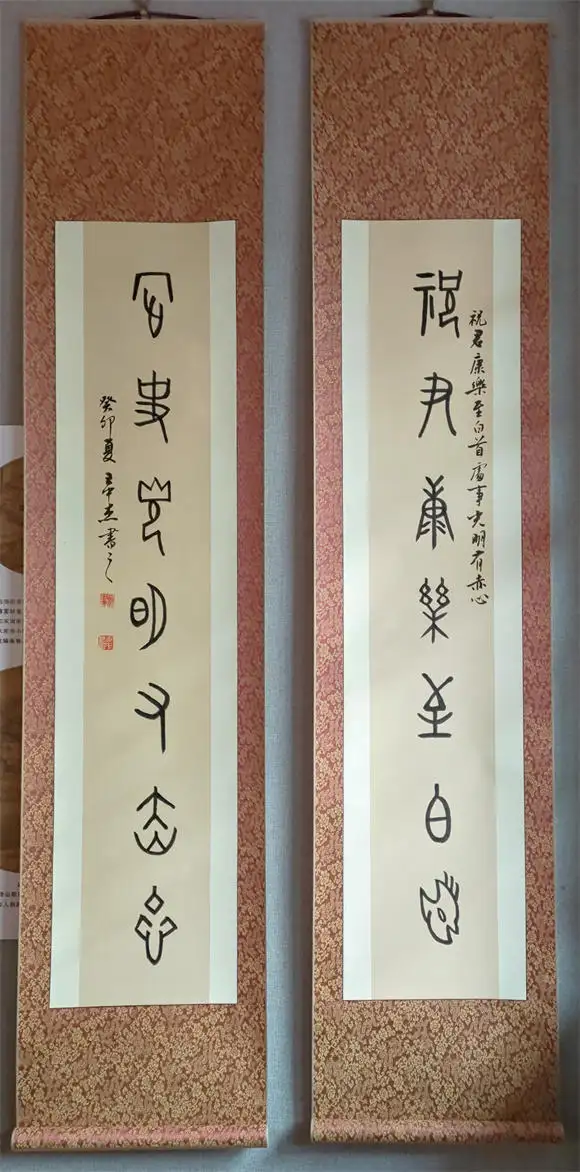 祝君康樂至白首處事光明有赤心
祝君康樂至白首
處事光明有赤心
癸卯夏 杰書之